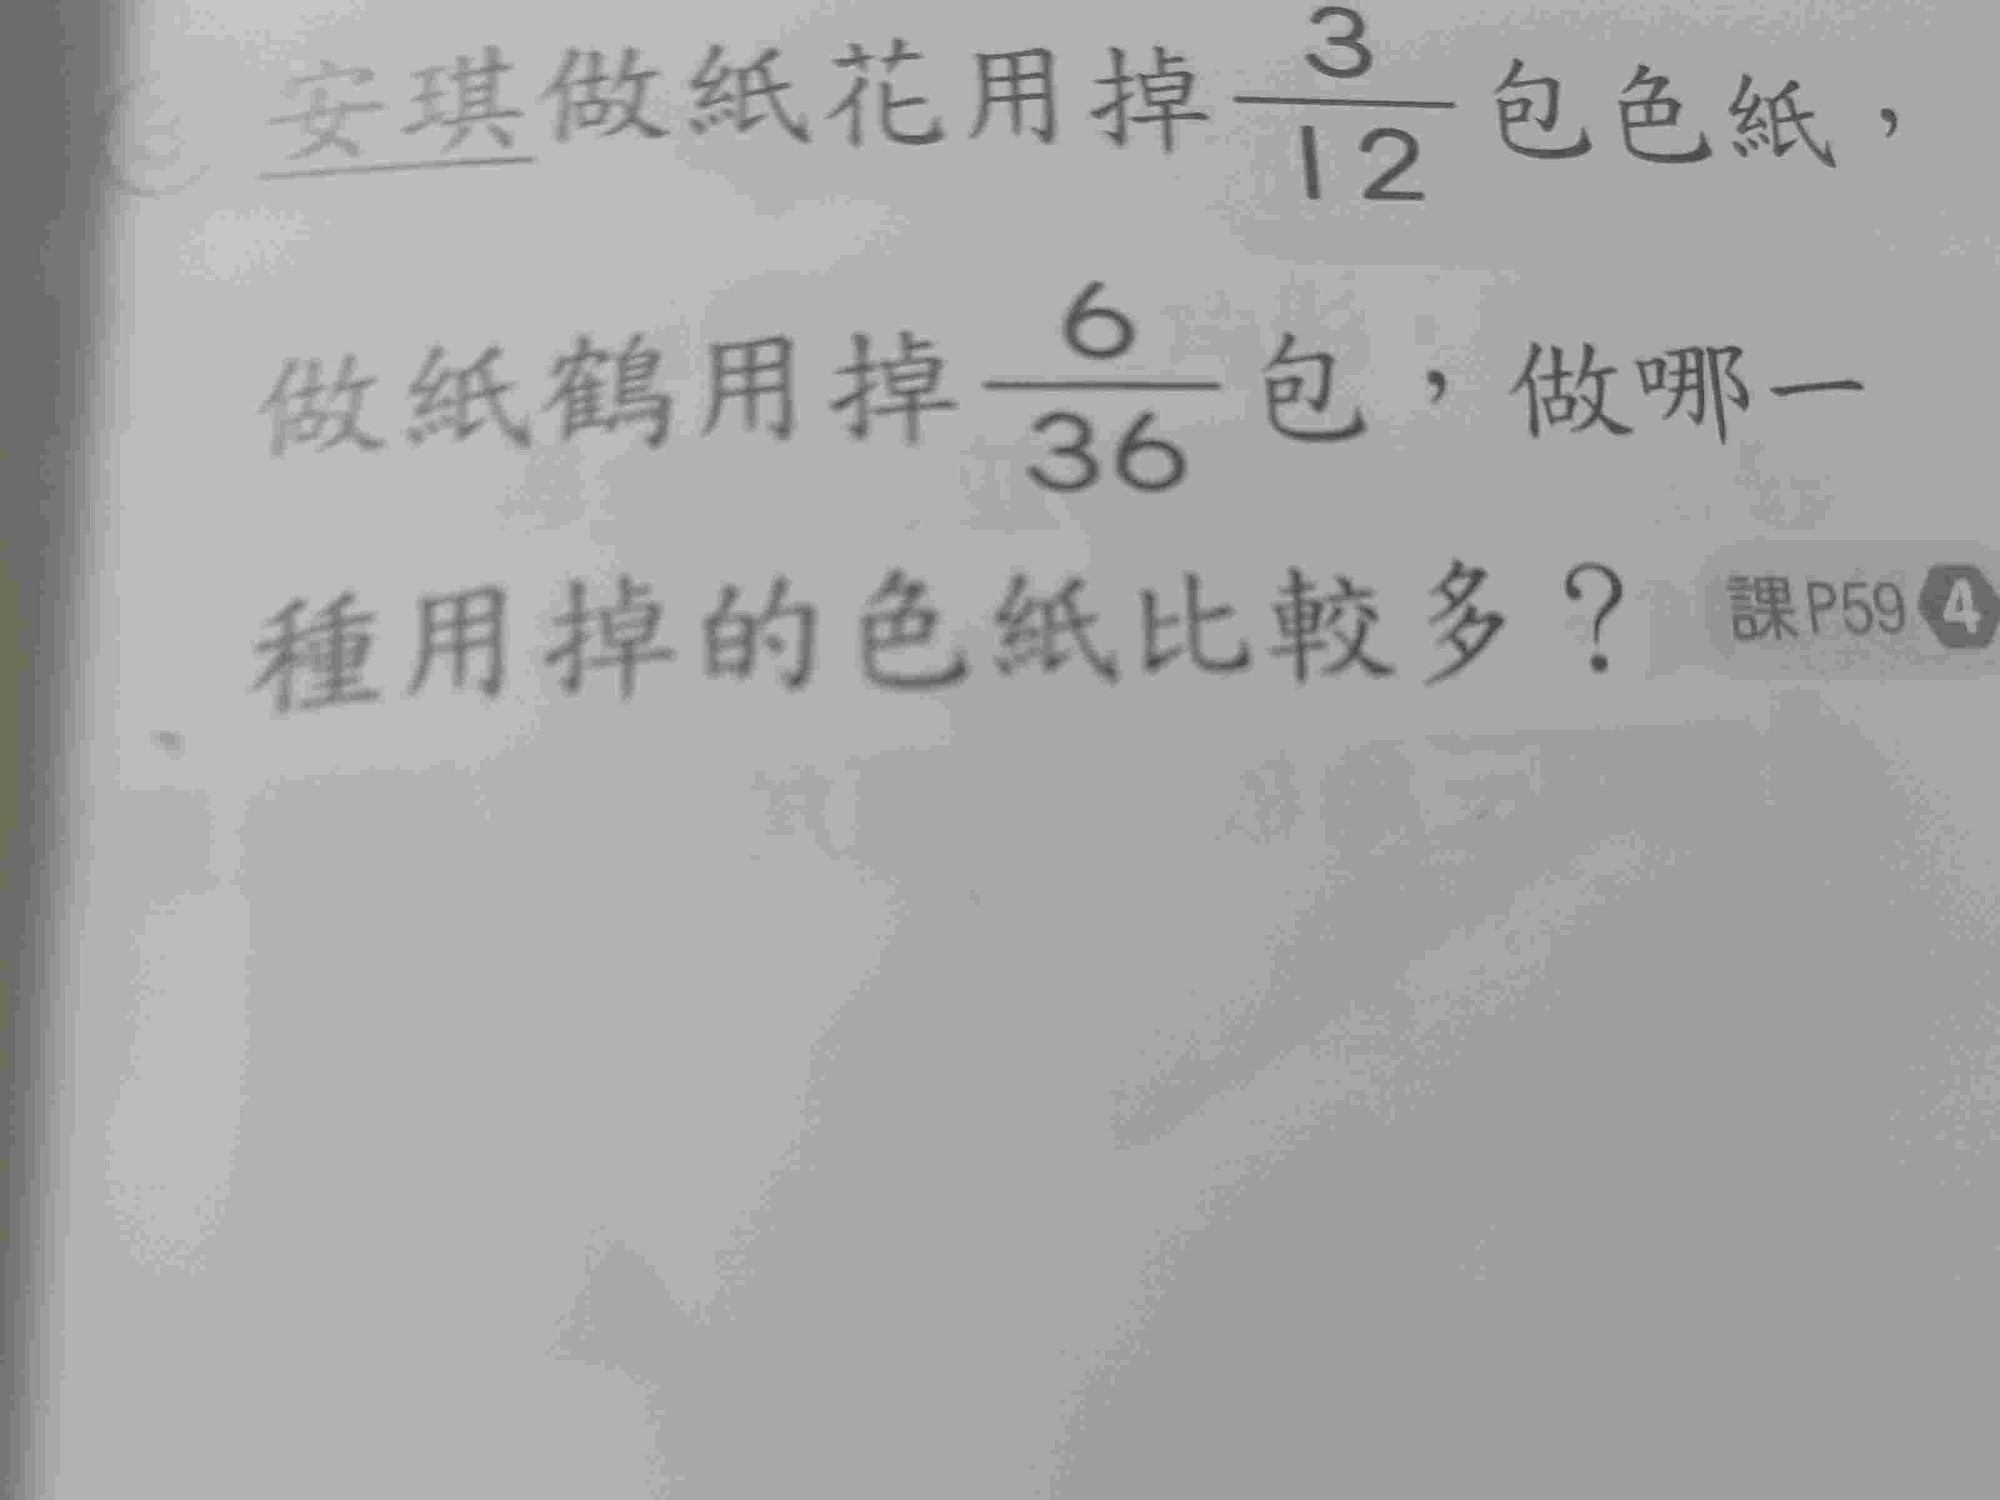 安琪做紙花用掉3/12包色紙，
做紙鶴用掉6/36包，做哪一
種用掉的色紙比較多？ 課P59 4